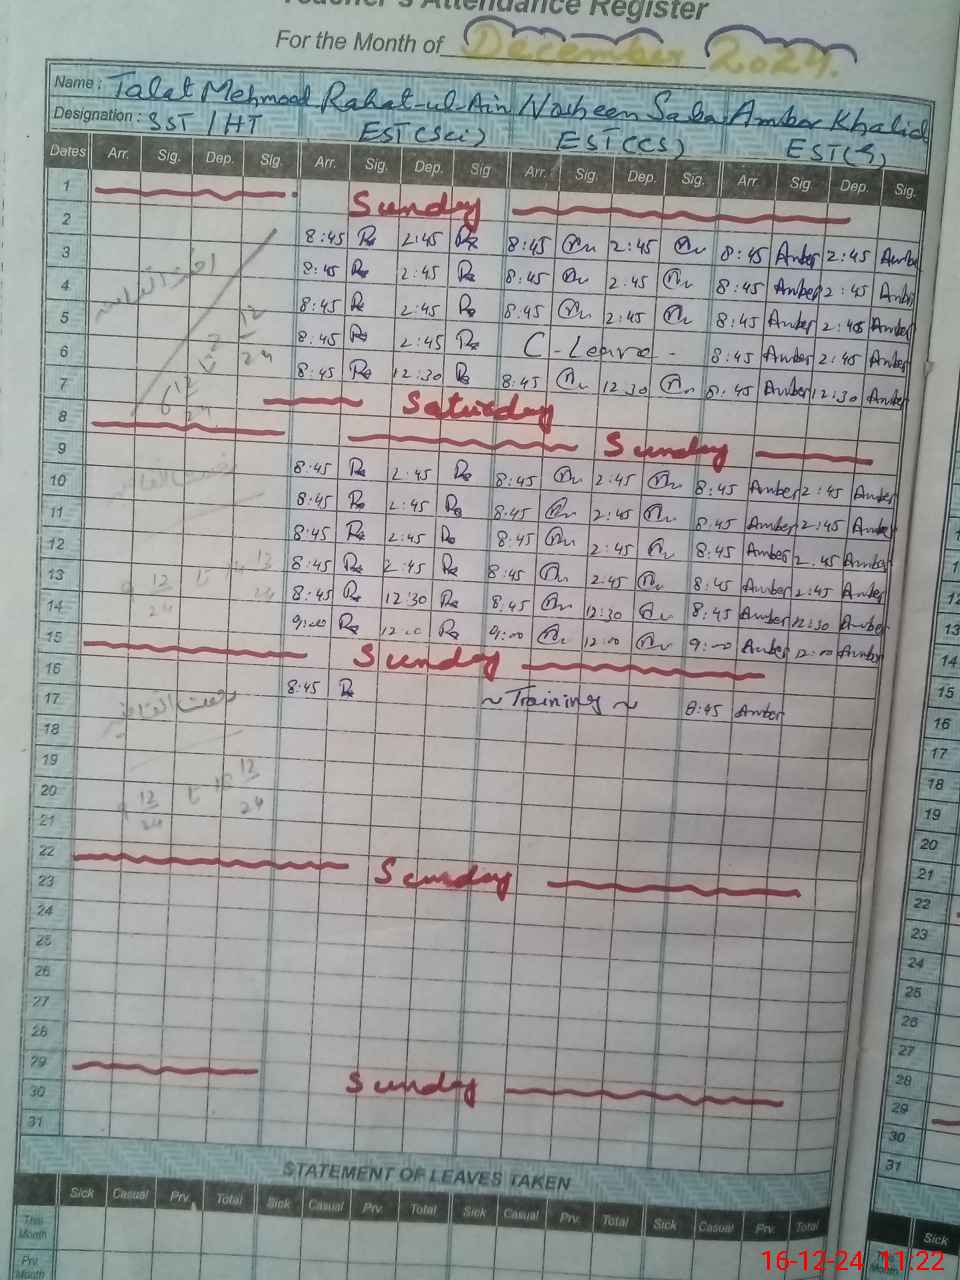 Teacher's Attendance Register
For the Month of December 2024.
Name : Talat Mehmood Rahat-ul-Ain Nosheen Saba Amber Khalid
Designation : SST / HT EST(Sci) EST(CS)
Dates Arr. Sig. Dep. Sig. Arr. Sig. Dep. Sig Arr. Sig. Dep. Sig. Arr. Sig. Dep. Sig.
1 Sunday
2 8:45 2:45 8:45 2:45 8:45 Amber 2:45 Amber
3 8:45 2:45 8:45 2:45 8:45 Amber 2:45 Amber
4 8:45 2:45 8:45 2:45 8:45 Amber 2:45 Amber
5 8:45 2:45 C-Leave - 8:45 Amber 2:45 Amber
6 8:45 12:30 8:45 12:30 8:45 Amber 12:30 Amber
7 Saturday
8 Sunday
9 8:45 2:45 8:45 2:45 8:45 Amber 2:45 Amber
10 8:45 2:45 8:45 2:45 8:45 Amber 2:45 Amber
11 8:45 2:45 8:45 2:45 8:45 Amber 2:45 Amber
12 8:45 2:45 8:45 2:45 8:45 Amber 2:45 Amber
13 8:45 12:30 8:45 12:30 8:45 Amber 12:30 Amber
14 9:00 12:00 9:00 12:00 9:00 Amber 12:00 Amber
15 Sunday
16 8:45 ~ Training ~ 8:45 Amber
17
18
19
20
21
22 Sunday
23
24
25
26
27
28
29 Sunday
30
31
STATEMENT OF LEAVES TAKEN
Sick Casual Prv. Total Sick Casual Prv. Total Sick Casual Prv. Total Sick Casual Prv. Total
This Month
Prv. Month
14
15
16
17
18
19
20
21
22
23
24
25
26
27
28
29
30
31
Sick
This Month
16-12-24 11:22